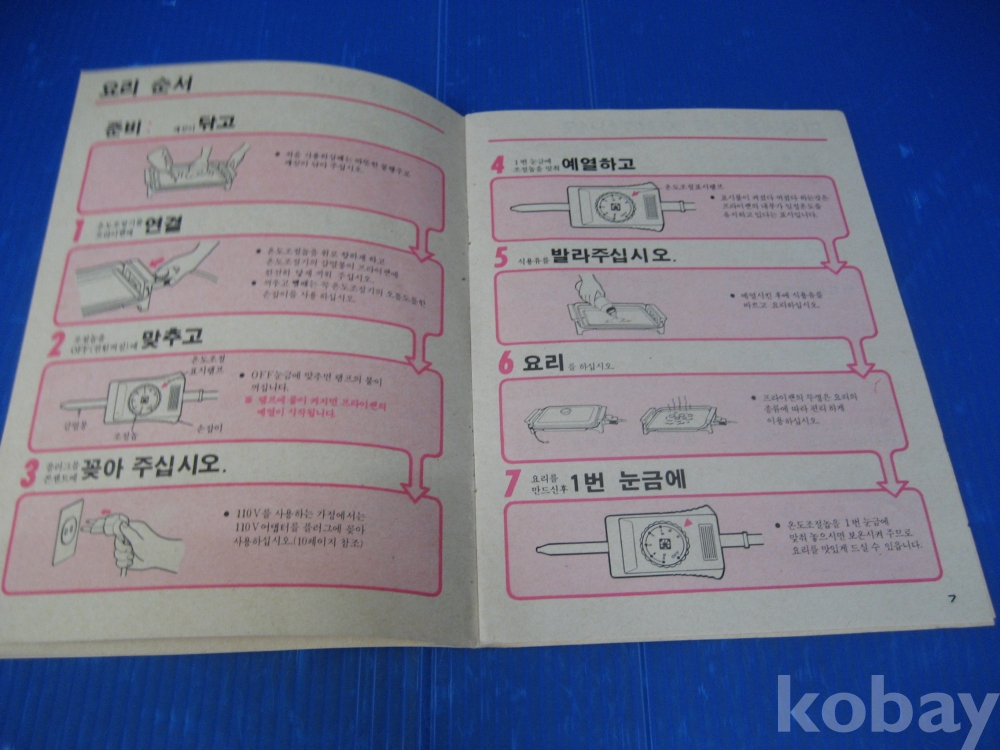 요리 순서
준비 : 깨끗이 닦고
● 처음 사용하실때는 따뜻한 물행주로
깨끗이 닦아 주십시오.
1 온도조절기를
프라이팬에 연결
● 온도조절놉을 위로 향하게 하고
온도조절기의 감열봉이 프라이팬에
완전히 닿게 끼워 주십시오.
● 끼우고 뺄때는 꼭 온도조절기의 오돌도돌한
손잡이를 사용 하십시오.
2 조절놉을
맞추고
온도조절
표시램프
감열봉
조절놉
손잡이
● OFF눈금에 맞추면 램프의 불이
꺼집니다.
※ 램프에 불이 켜지면 프라이팬의
예열이 시작됩니다.
3 플러그를
콘센트에 꽂아 주십시오.
● 110V를 사용하는 가정에서는
110V어댑터를 플러그에 꽂아
사용하십시오.(10페이지 참조)
4 1번 눈금에
조절놉을 맞춰 예열하고
온도조절표시램프
● 표시불이 켜졌다 꺼졌다 하는것은
프라이팬의 내부가 일정온도를
유지하고 있다는 표시입니다.
5 식용유를 발라주십시오.
● 예열시킨 후에 식용유를
바르고 요리하십시오.
6 요리를 하십시오.
● 프라이팬의 뚜껑은 요리의
종류에 따라 편리하게
이용하십시오.
7 요리를
만드신후 1번 눈금에
● 온도조절놉을 1번 눈금에
맞춰 놓으시면 보온시켜 주므로
요리를 맛있게 드실 수 있읍니다.
7
kobay